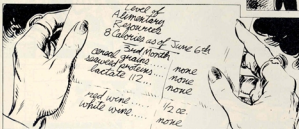 Level of
Alimentary
Resources
& Calories as of June 6th
3rd Month
cereal grains.... none
seaweed proteins.... none
lactate 112.... none
red wine..... 1/2 cc.
white wine.... none